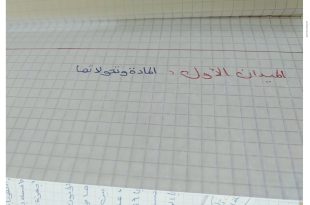 الميدان الأول : المادة وتحولاتها